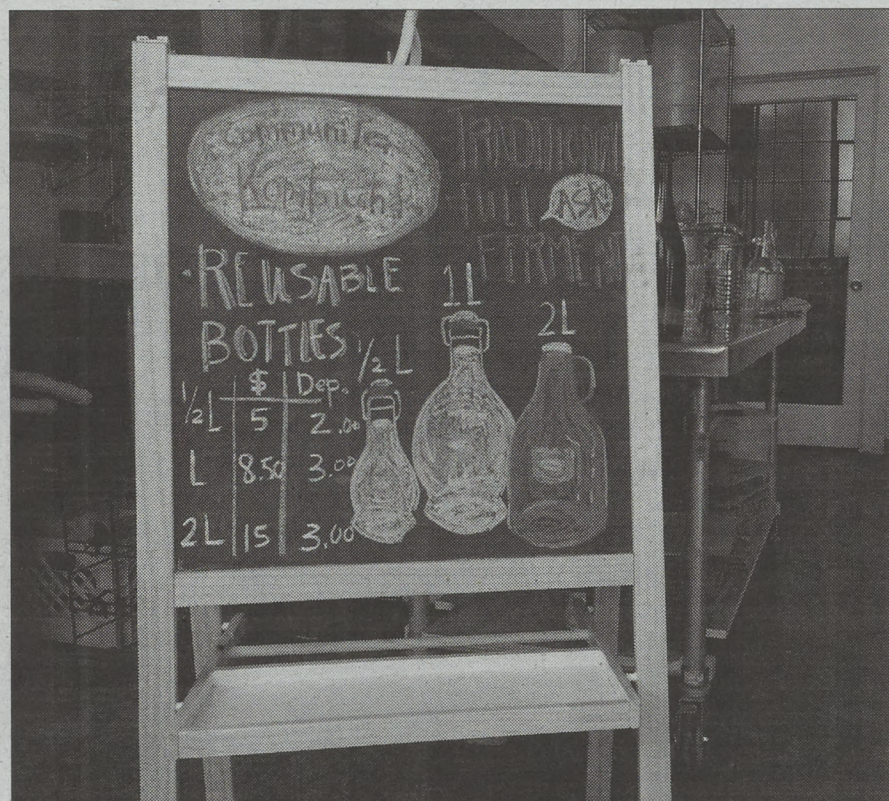 Communitea
Kombucha
TRADITIONAL
FULL ASK
FERMENT
· REUSABLE
BOTTLES
1/2 L
1L
2L
$ Dep.
1/2L 5 2.00
L 8.50 3.00
2L 15 3.00